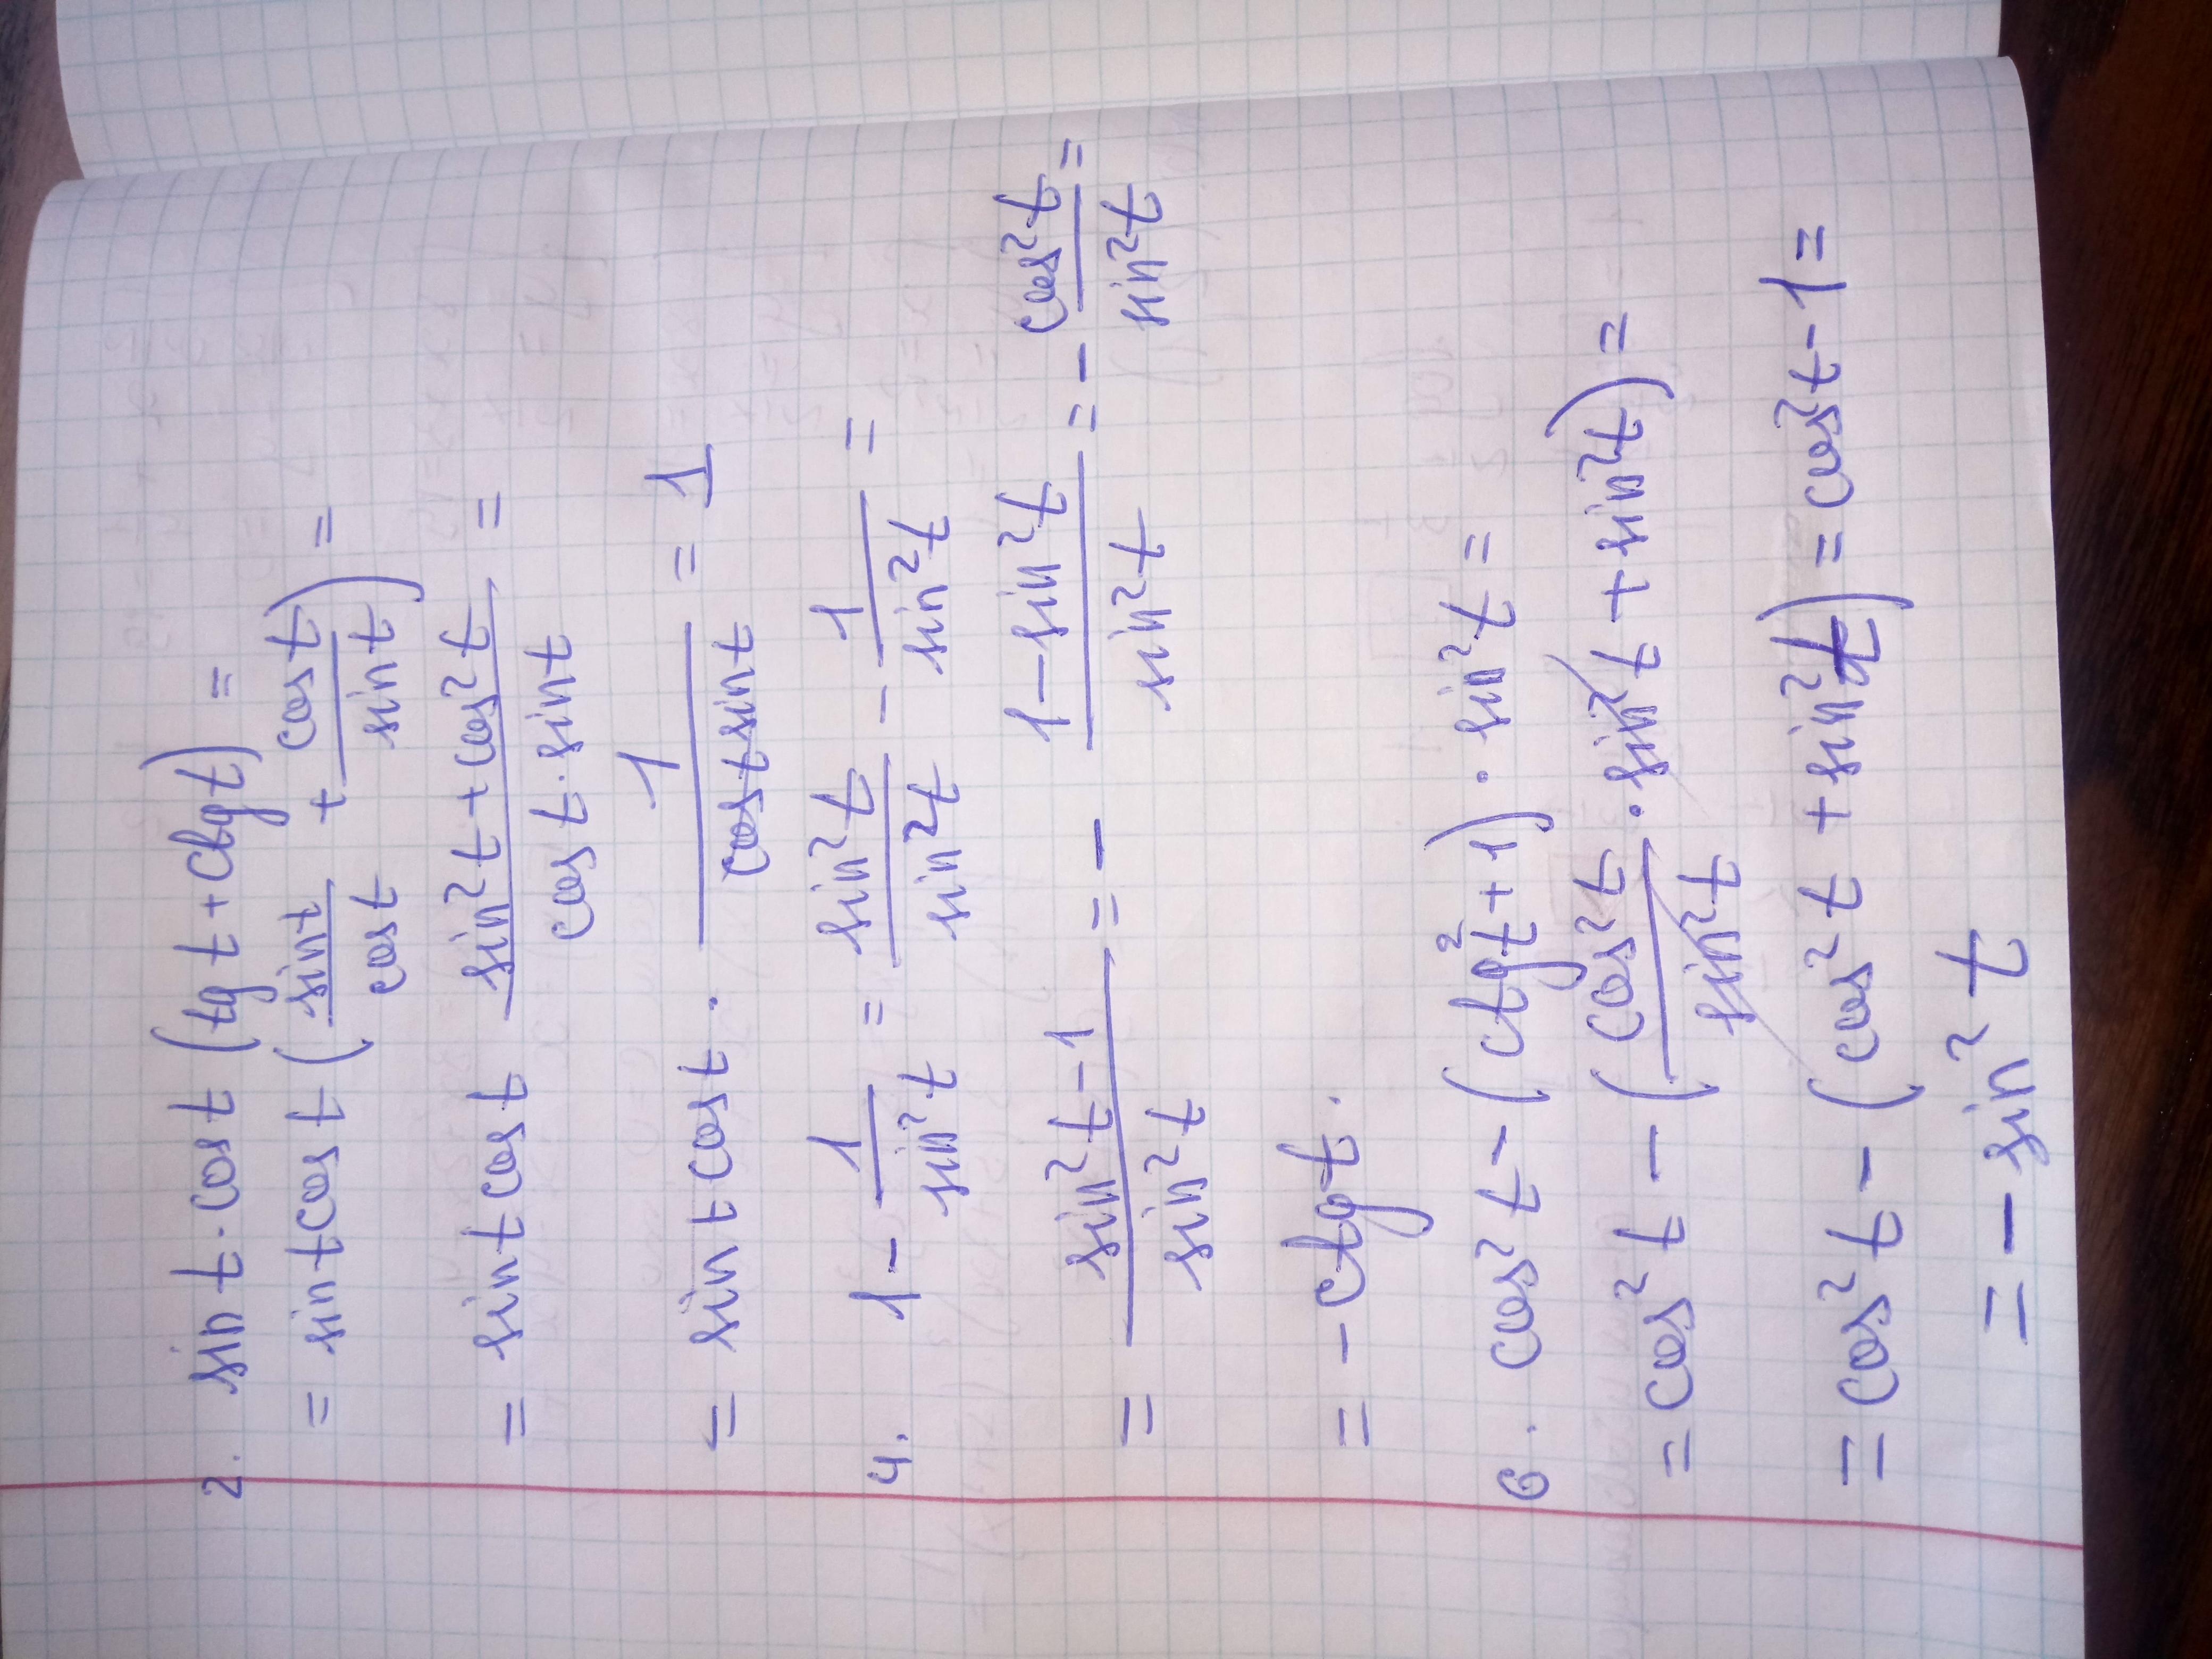 2. sin t · cos t (tg t + ctg t) =
= sin t cos t (sin t / cos t + cos t / sin t) =
= sin t cos t (sin² t + cos² t) / (cos t · sin t) =
= sin t cos t · 1 / (cos t sin t) = 1
4. 1 - 1 / sin² t = sin² t / sin² t - 1 / sin² t =
= (sin² t - 1) / sin² t = - (1 - sin² t) / sin² t = - cos² t / sin² t =
= - ctg t.
6. cos² t - (ctg² t + 1) · sin² t =
= cos² t - (cos² t / sin² t · sin² t + sin² t) =
= cos² t - (cos² t + sin² t) = cos² t - 1 =
= - sin² t